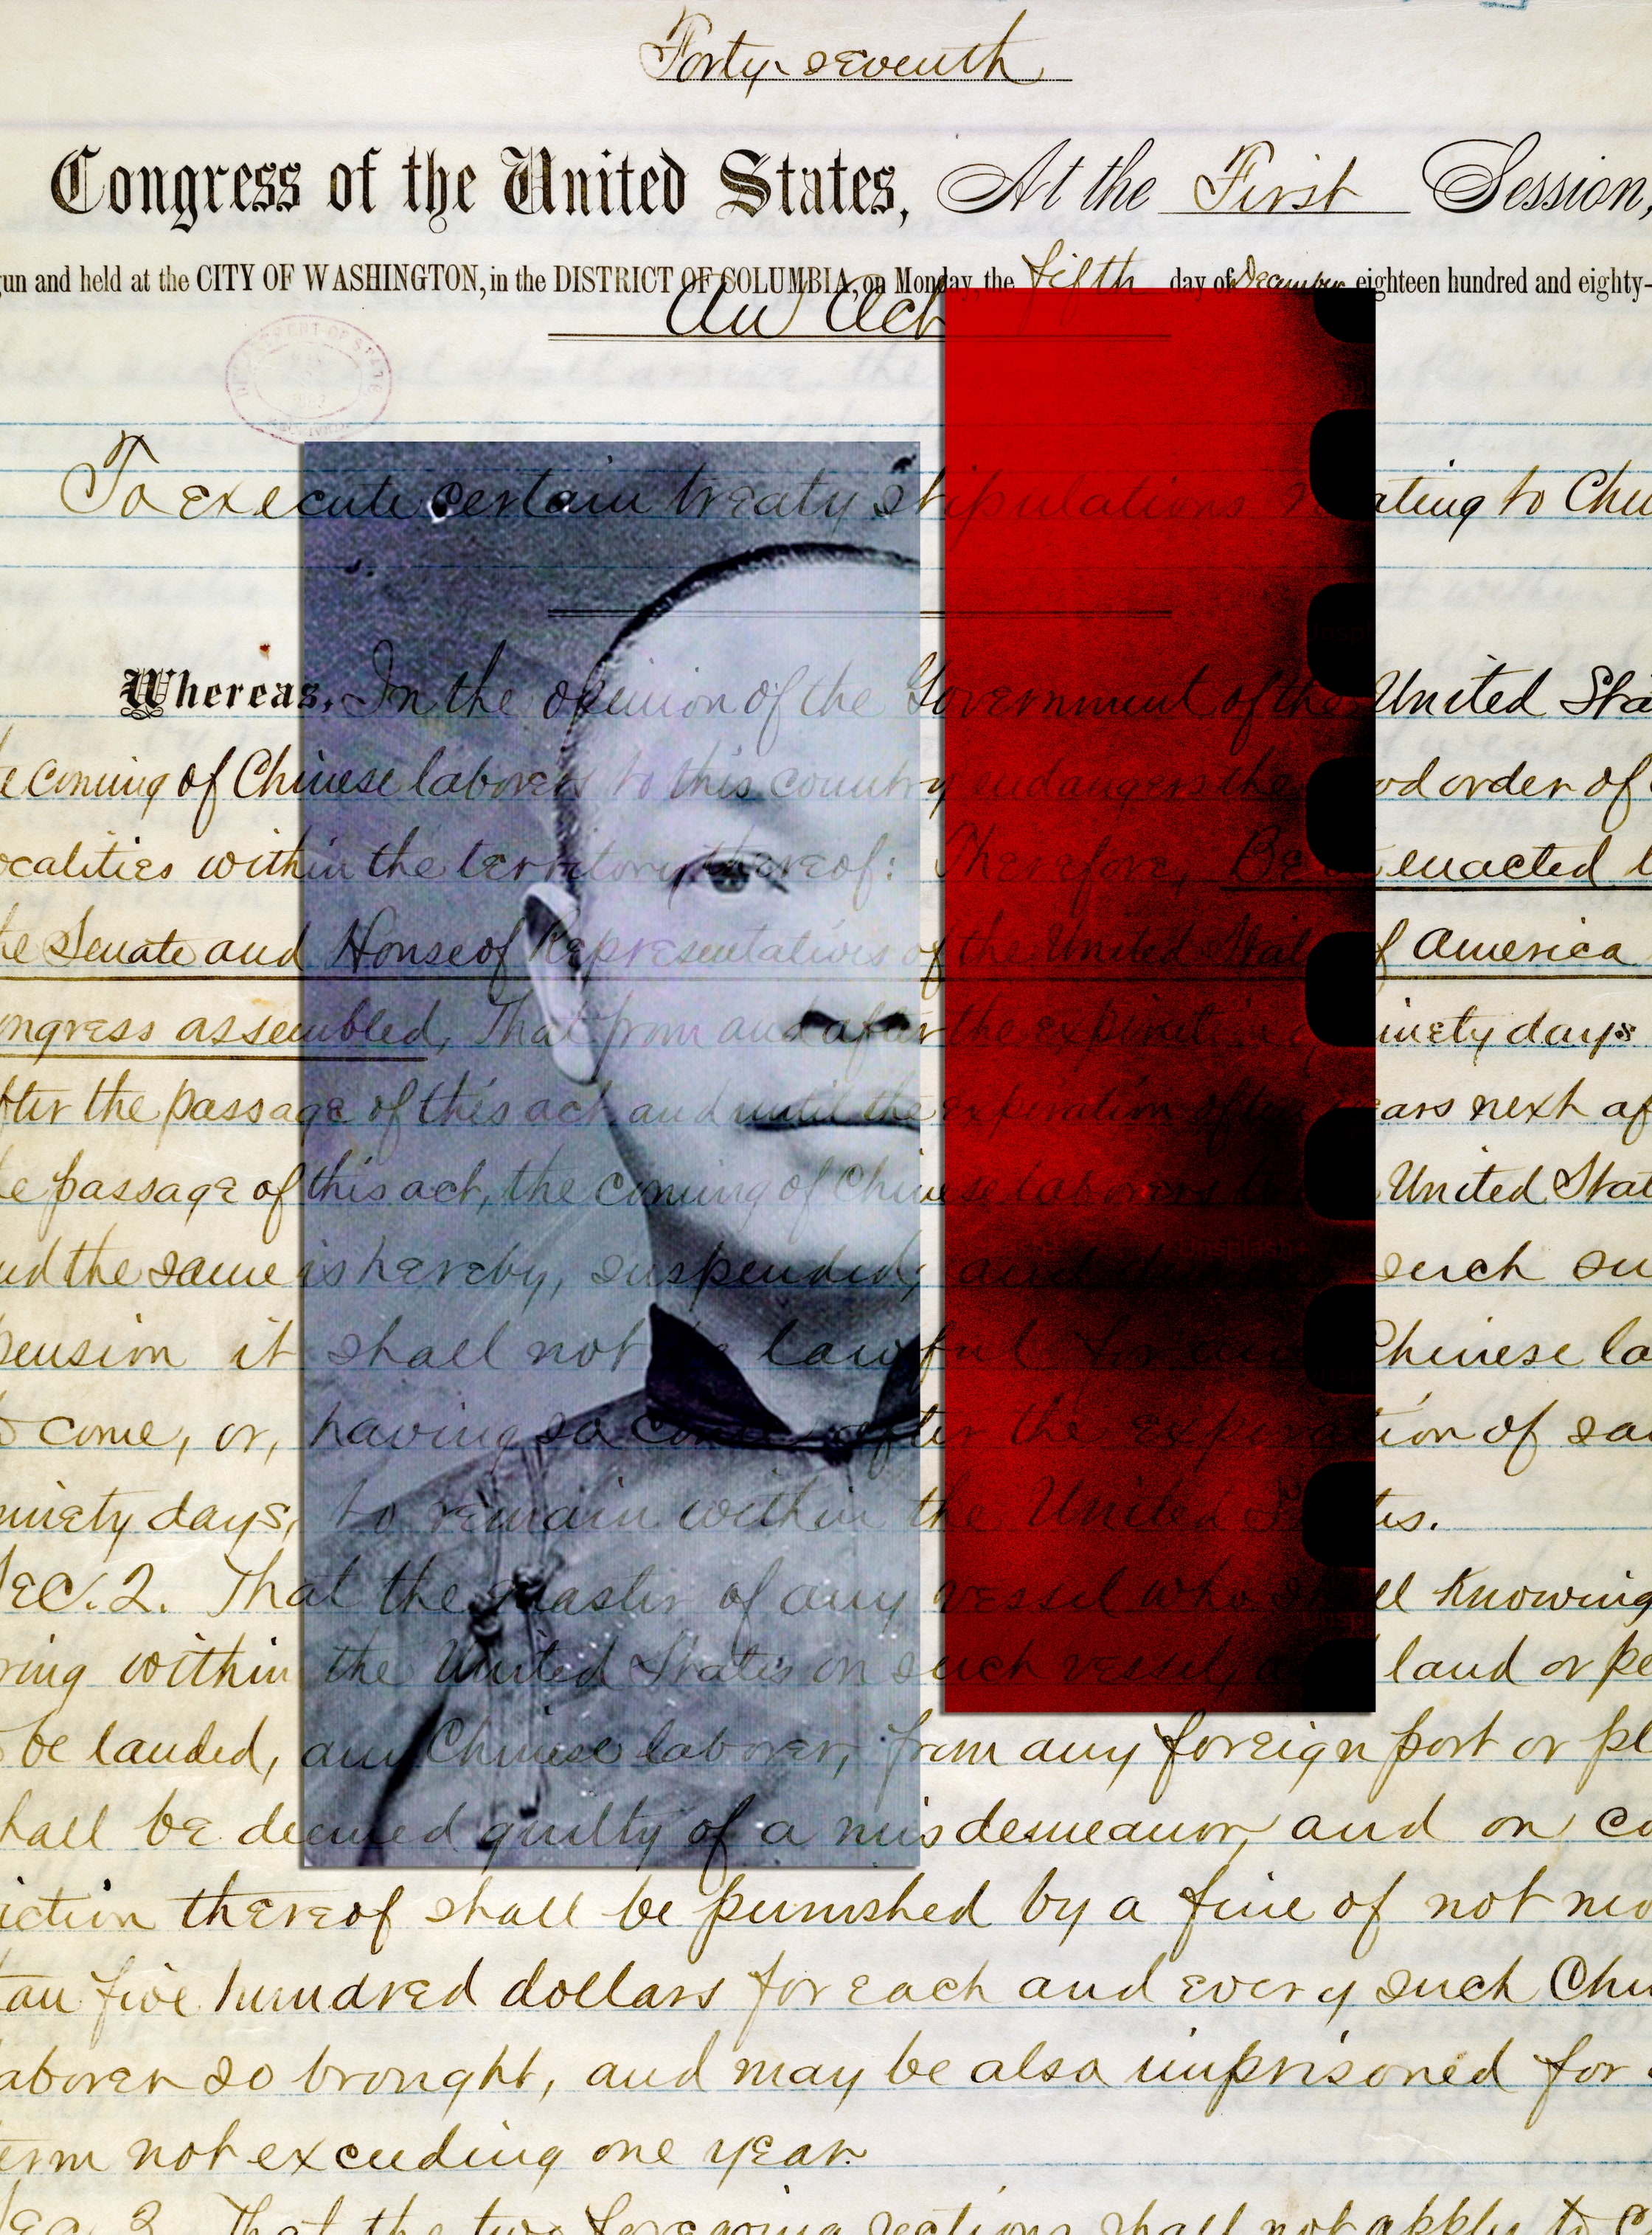 Forty-seventh
Congress of the United States, At the First Session,
gun and held at the CITY OF WASHINGTON, in the DISTRICT OF COLUMBIA, on Monday, the fifth day of December eighteen hundred and eighty-
An Act
To execute certain treaty stipulations relating to Chi
Whereas, In the opinion of the Government of the United Sta
e coming of Chinese laborers to this country endangers the good order of
ocalities within the territory thereof: Therefore, Be it enacted b
he Senate and House of Representatives of the United States of America
ongress assembled, That from and after the expiration of ninety days
fter the passage of this act, and until the expiration of ten years next af
e passage of this act, the coming of Chinese laborers to the United Stat
nd the same is hereby, suspended; and such su
pension it shall not be lawful for any Chinese la
o come, or, having so come after the expiration of sai
ninety days, to remain within the United States.
Sec. 2. That the master of any vessel who shall knowing
ring within the United States on such vessel, and land or pe
be landed, any Chinese laborer, from any foreign port or pl
hall be deemed guilty of a misdemeanor, and on co
iction thereof shall be punished by a fine of not mo
an five hundred dollars for each and every such Chi
aborer so brought, and may be also imprisoned for
erm not exceeding one year.
Sec. 3. That the two foregoing sections shall not apply to C